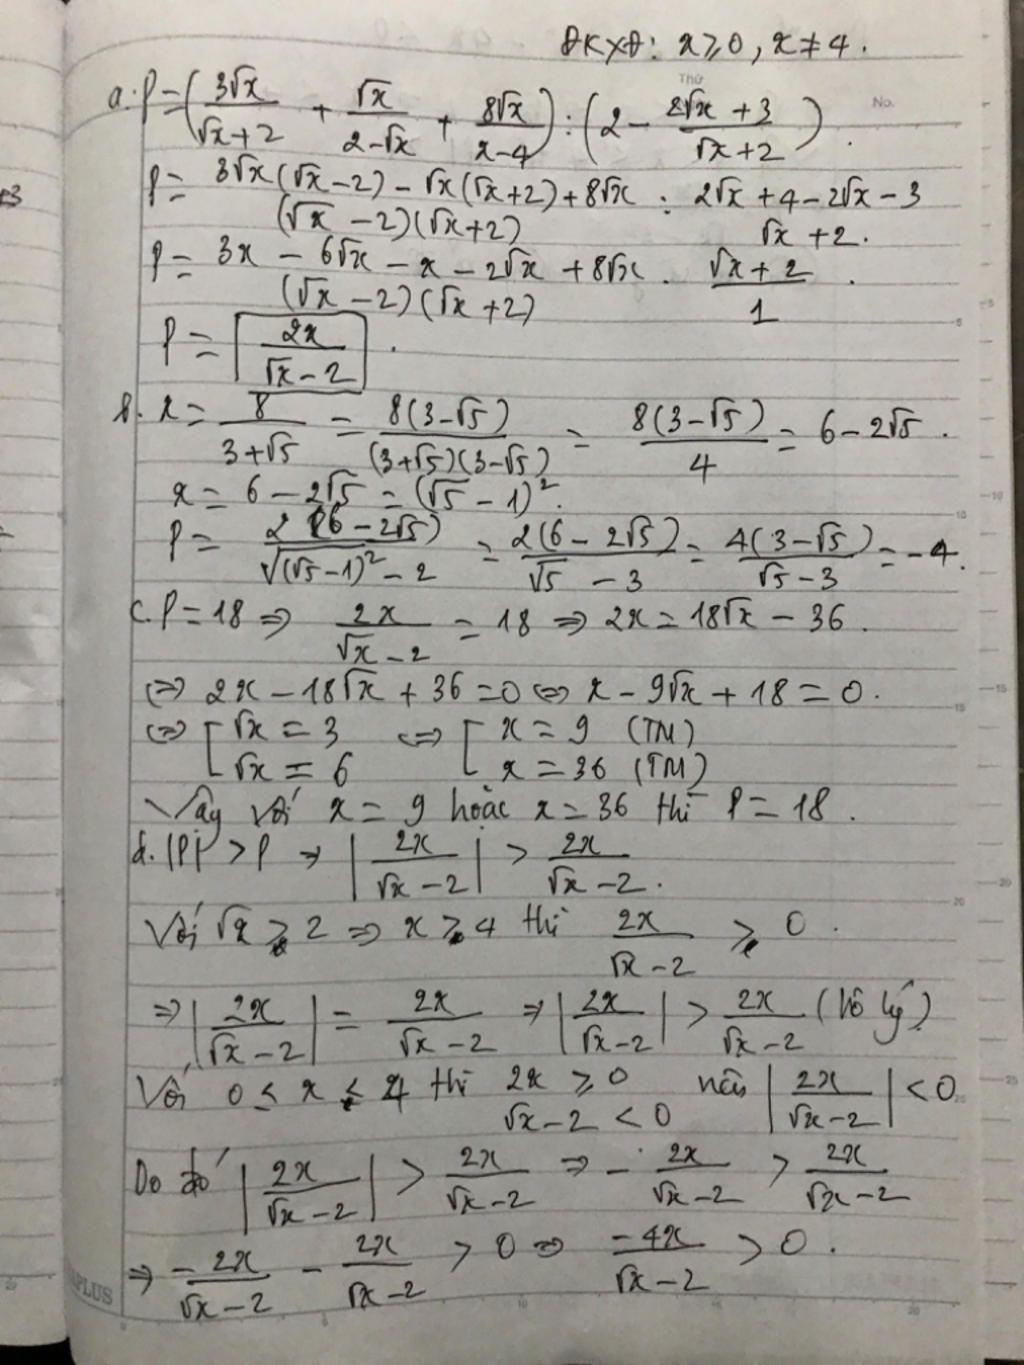 ĐKXĐ: x ⩾ 0, x ≠ 4.
Thứ
No.
a. P = (3√x/(√x+2) + √x/(2-√x) + 8√x/(x-4)) : (2 - (2√x+3)/(√x+2)).
P = (3√x(√x-2) - √x(√x+2) + 8√x)/((√x-2)(√x+2)) : (2√x+4-2√x-3)/(√x+2).
P = (3x - 6√x - x - 2√x + 8√x)/((√x-2)(√x+2)) . (√x+2)/1.
P = 2x/(√x-2).
b. x = 8/(3+√5) = 8(3-√5)/((3+√5)(3-√5)) = 8(3-√5)/4 = 6-2√5.
x = 6 - 2√5 = (√5 - 1)².
P = 2(6-2√5)/(√(√5-1)² - 2) = 2(6-2√5)/(√5 - 3) = 4(3-√5)/(√5-3) = -4.
c. P = 18 ⇒ 2x/(√x-2) = 18 ⇒ 2x = 18√x - 36.
⇔ 2x - 18√x + 36 = 0 ⇔ x - 9√x + 18 = 0.
⇔ [ √x = 3 ⇔ [ x = 9 (TM)
√x = 6 x = 36 (TM)
Vậy với x = 9 hoặc x = 36 thì P = 18.
d. |P| > P ⇒ |2x/(√x-2)| > 2x/(√x-2).
Với √x ⩾ 2 ⇒ x ⩾ 4 thì 2x/(√x-2) ⩾ 0.
⇒ |2x/(√x-2)| = 2x/(√x-2) ⇒ |2x/(√x-2)| > 2x/(√x-2) (Vô lý)
Với 0 ≤ x ≤ 4 thì 2x ⩾ 0 nên |2x/(√x-2)| < 0
√x-2 < 0
Do đó |2x/(√x-2)| > 2x/(√x-2) ⇒ - 2x/(√x-2) > 2x/(√x-2)
⇒ -2x/(√x-2) - 2x/(√x-2) > 0 ⇒ -4x/(√x-2) > 0.